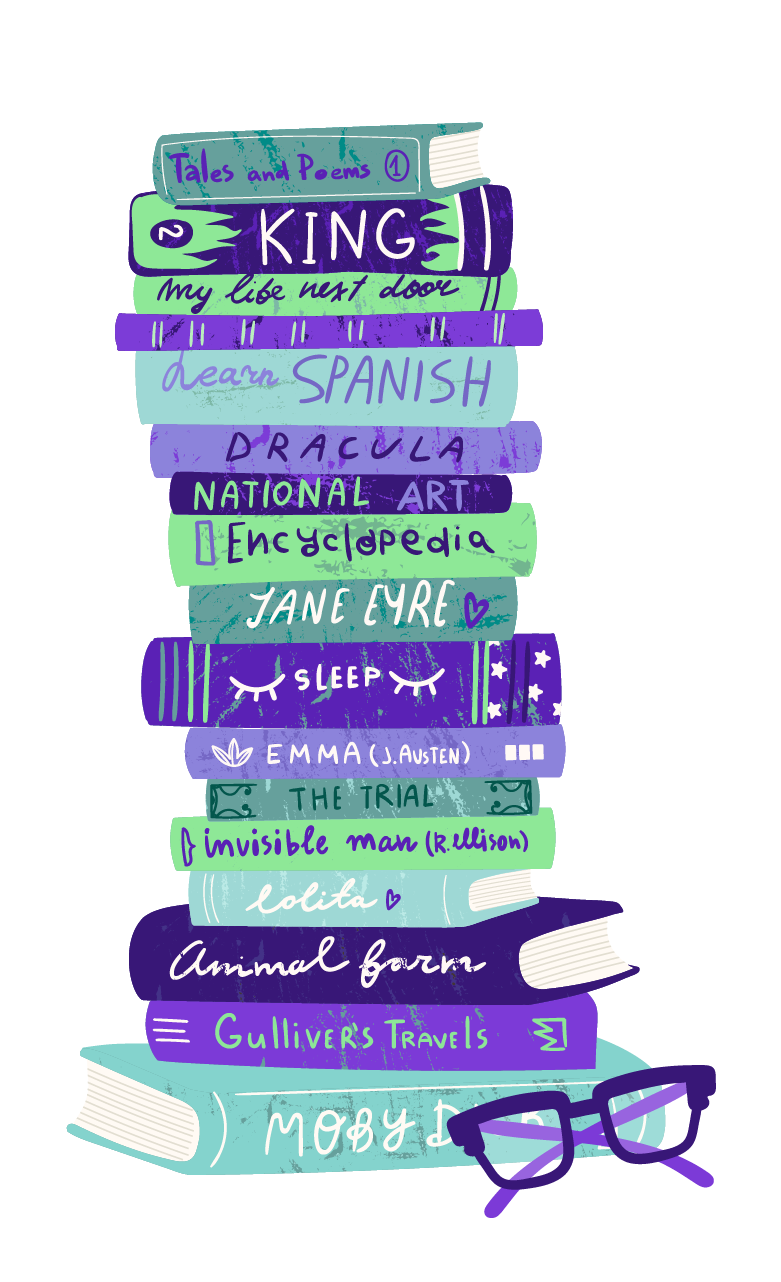 Tales and Poems 1
2 KING
my life next door
Learn SPANISH
DRACULA
NATIONAL ART
Encyclopedia
JANE EYRE
SLEEP
EMMA (J. AUSTEN)
THE TRIAL
invisible man (R. ellison)
lolita
Animal farm
GulliveR's TRAvels
MOBY